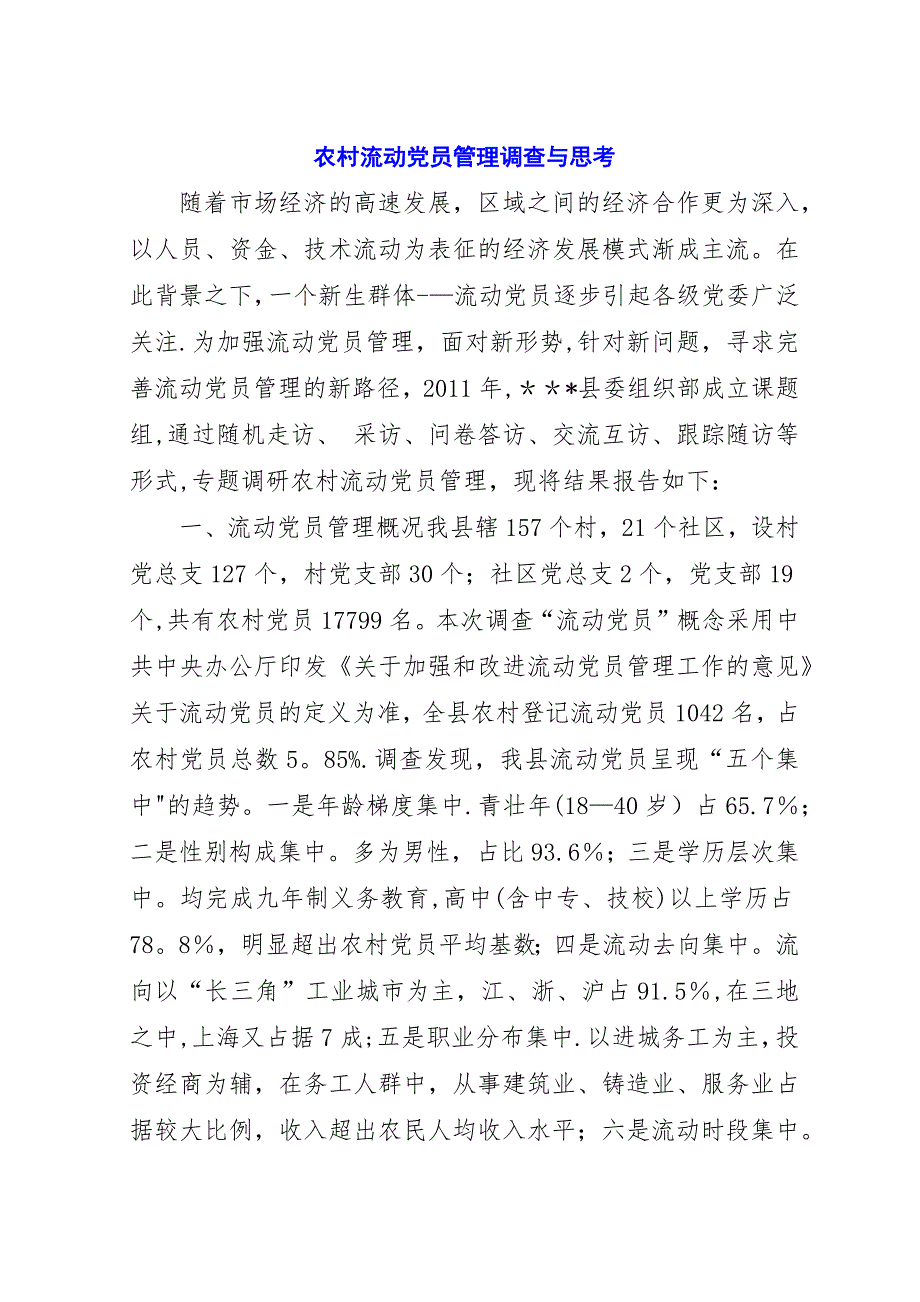 农村流动党员管理调查与思考
随着市场经济的高速发展，区域之间的经济合作更为深入，
以人员、资金、技术流动为表征的经济发展模式渐成主流。在
此背景之下,一个新生群体-—流动党员逐步引起各级党委广泛
关注.为加强流动党员管理，面对新形势,针对新问题，寻求完
善流动党员管理的新路径，2011 年,＊＊*县委组织部成立课题
组,通过随机走访、 采访、问卷答访、交流互访、跟踪随访等
形式,专题调研农村流动党员管理，现将结果报告如下：
一、流动党员管理概况我县辖 157 个村，21 个社区，设村
党总支 127 个，村党支部 30 个；社区党总支 2 个，党支部 19
个,共有农村党员 17799 名。本次调查“流动党员”概念采用中
共中央办公厅印发《关于加强和改进流动党员管理工作的意见》
关于流动党员的定义为准，全县农村登记流动党员 1042 名，占
农村党员总数 5。85%.调查发现，我县流动党员呈现“五个集
中"的趋势。一是年龄梯度集中.青壮年(18—40 岁）占 65.7％；
二是性别构成集中。多为男性，占比 93.6％；三是学历层次集
中。均完成九年制义务教育,高中(含中专、技校)以上学历占
78。8％，明显超出农村党员平均基数；四是流动去向集中。流
向以“长三角”工业城市为主，江、浙、沪占 91.5％,在三地
之中,上海又占据 7 成;五是职业分布集中.以进城务工为主，投
资经商为辅，在务工人群中，从事建筑业、铸造业、服务业占
据较大比例，收入超出农民人均收入水平；六是流动时段集中。